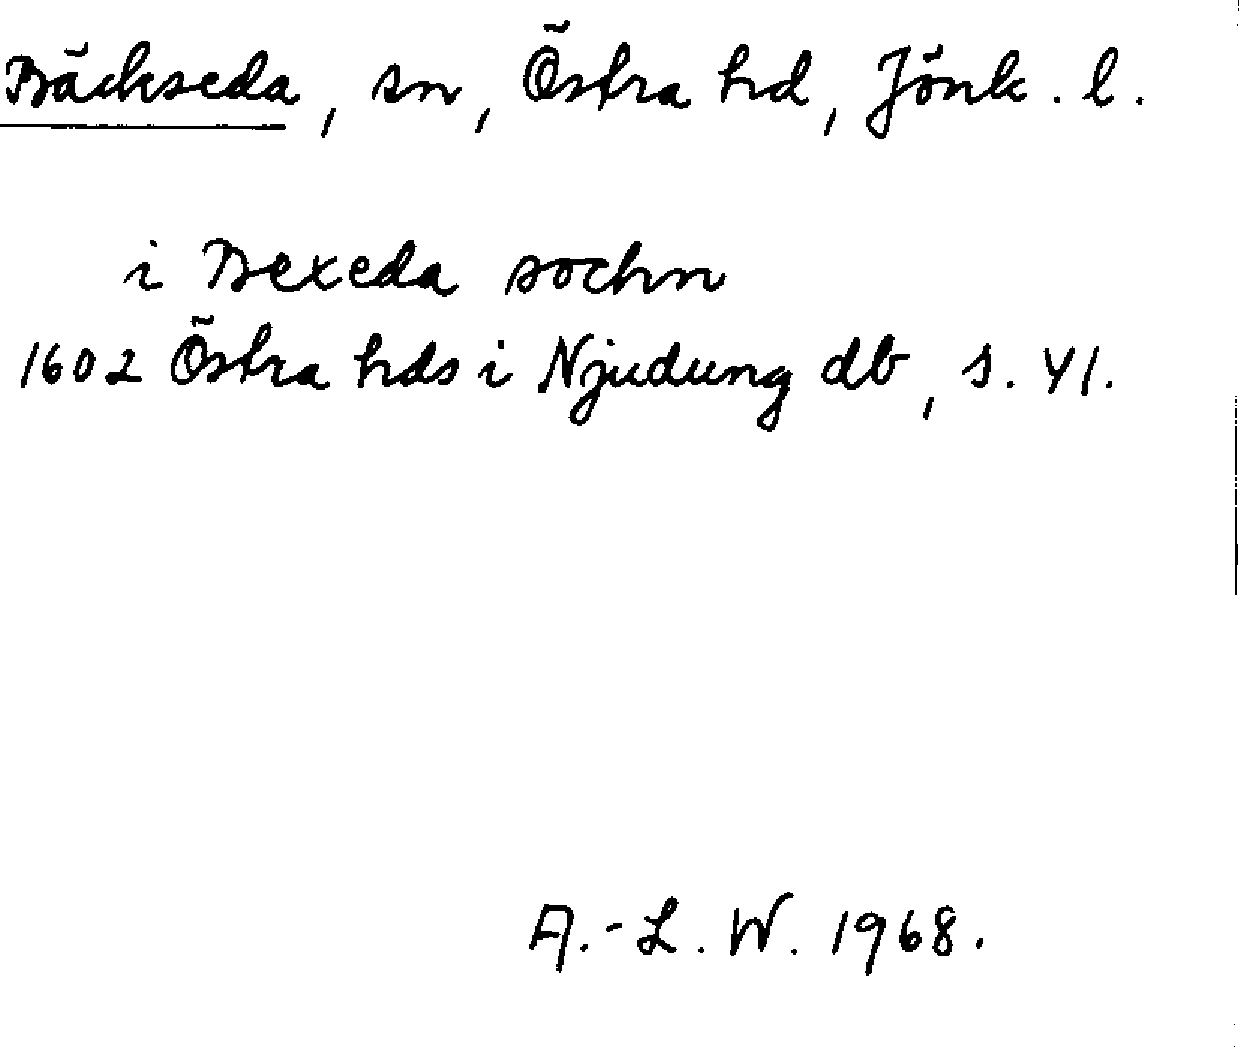 Bäckseda, sn, Östra hd, Jönk. l.
i Bexeda sochn
1602 Östra hds i Njudung db, s. 41.
A.-L. W. 1968.